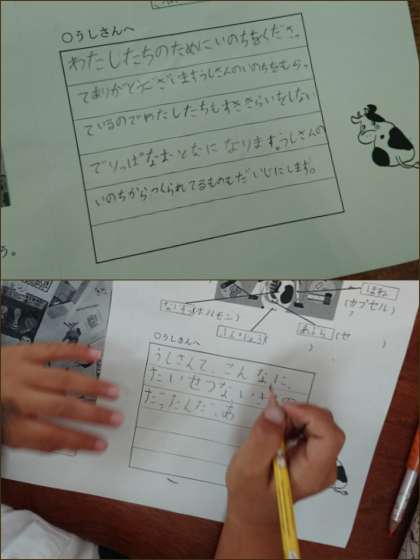 ○うしさんへ
わたしたちのためにいのちをくださっ
てありがとうございますうしさんのいのちをもらっ
ているのでわたしたちもすききらいをしない
でりっぱなおとなになります。うしさんの
いのちからつくられてるものもだいじにします。
う。
ほね
(カプセル)
?
ないぞう(ホルモン)
あぶら(せ
)
?
)
○うしさんへ
うしさんて、こんなに、
たいせつないの
だったんだ、あ